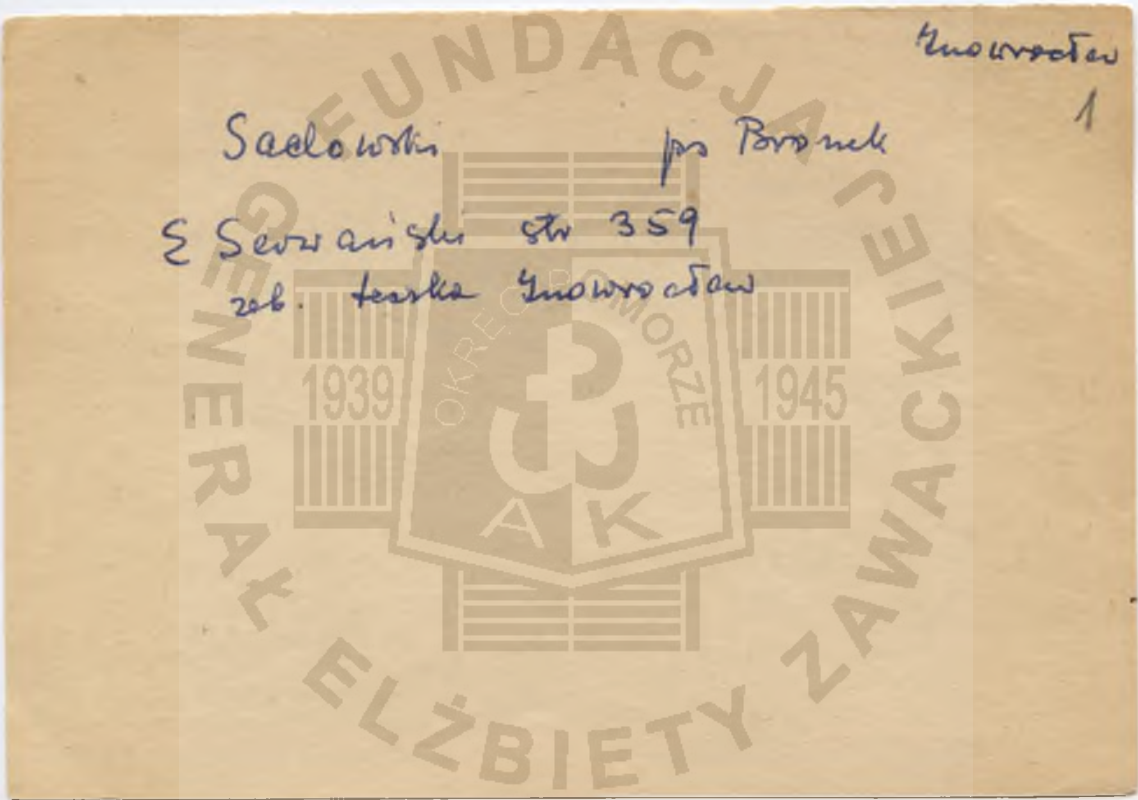 Inowrocław
1
Sadowski ps Bronek
E Serwański str 359
zob. teczka Inowrocław
FUNDACJA GENERAŁ ELŻBIETY ZAWACKIEJ
OKRĘG POMORZE
1939 1945
A K